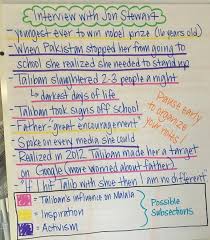 Interview with Jon Stewart
- youngest ever to win nobel prize (16 years old)
- When Pakistan stopped her from going to
school she realized she needed to stand up
- Taliban slaughtered 2-3 people a night
↳ darkest days of life
- Taliban took signs off school
- Father "great encouragement"
- Spoke on every media she could
- Realized in 2012 Taliban made her a target
on Google (more worried about father)
- "If I hit Talib with shoe then I am no different"
Pause early
to organize
your notes!
= Taliban's influence on Malala
= Inspiration
= Activism
Possible
Subsections